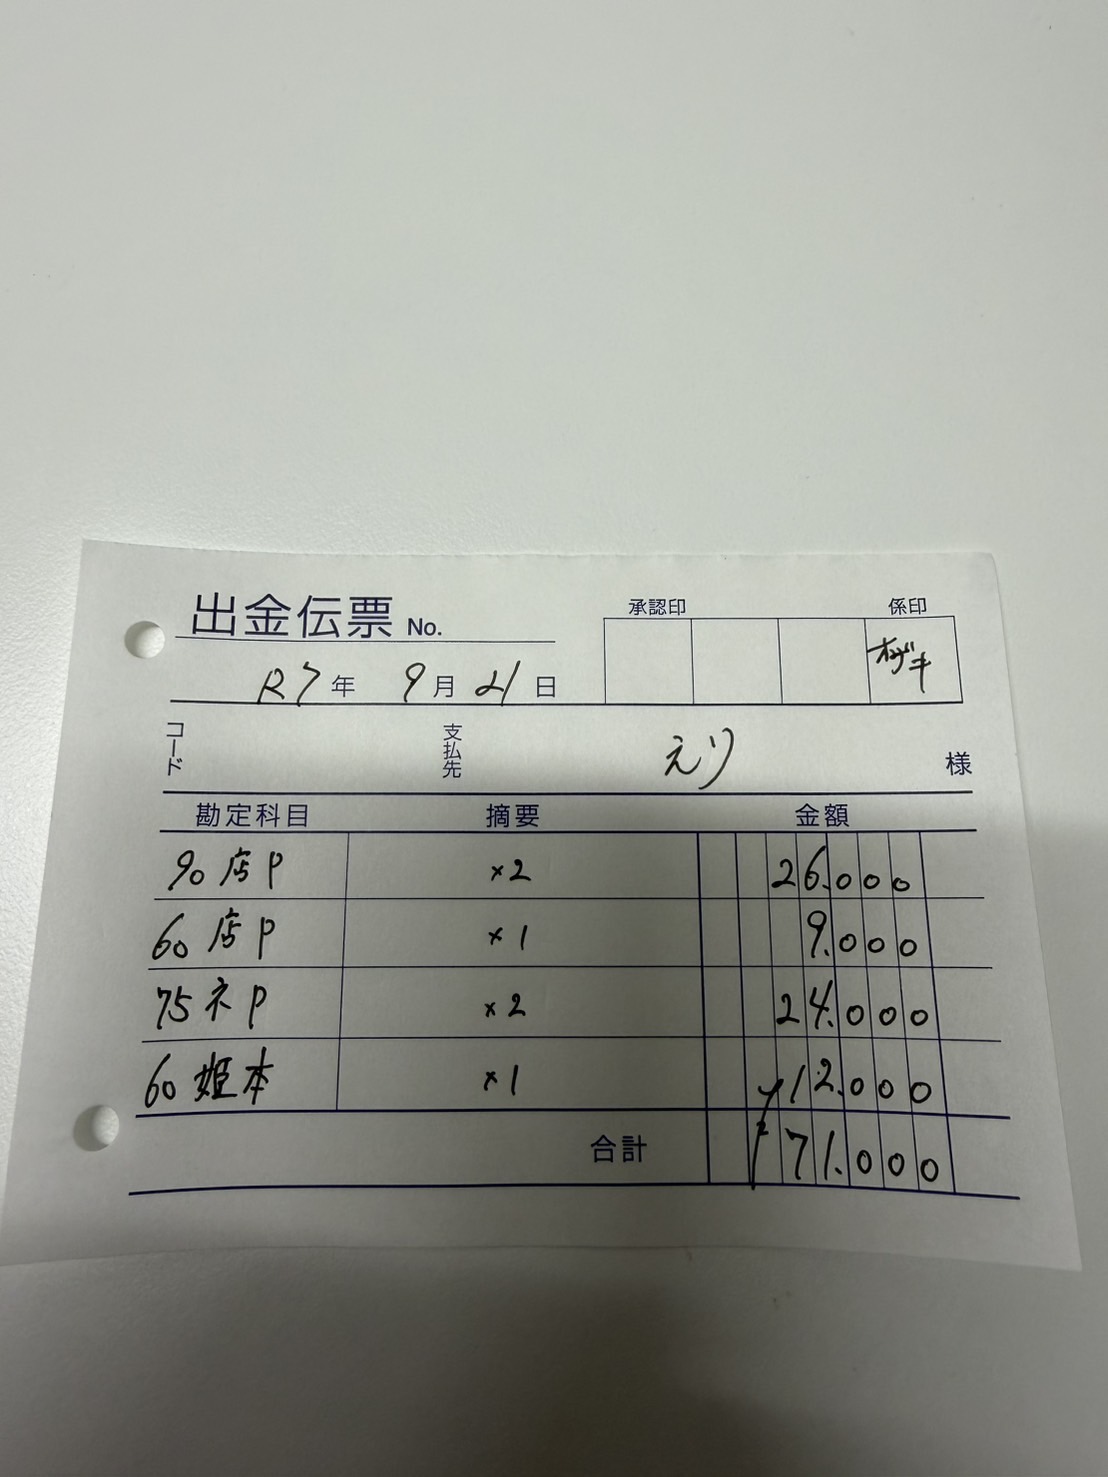 出金伝票 No.
承認印 係印
オザキ
R7年 9月21日
コード 支払先 えり 様
勘定科目 摘要 金額
90店P ×2 26.000
60店P ×1 9.000
75ネP ×2 24.000
60姫本 ×1 ¥12.000
合計 ¥71.000